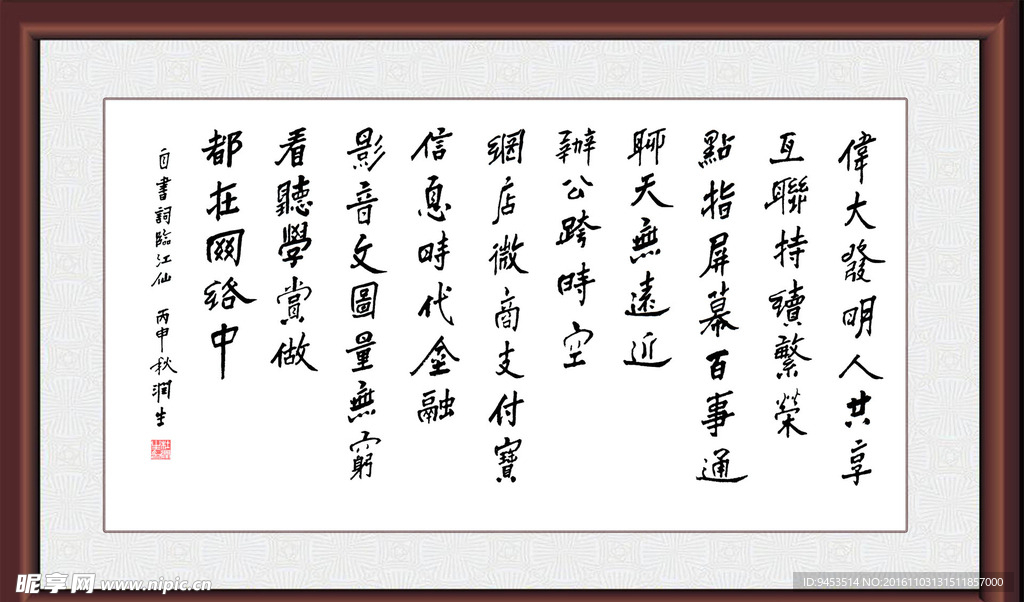 偉大發明人共享
互聯持續繁榮
點指屏幕百事通
聊天無遠近
辦公跨時空
網店微商支付寶
信息時代金融
影音文圖量無窮
看聽學賞做
都在网络中
自書詞臨江仙 丙申秋潤生
昵享网 www.nipic.cn
ID:9453514 NO:20161103131511857000